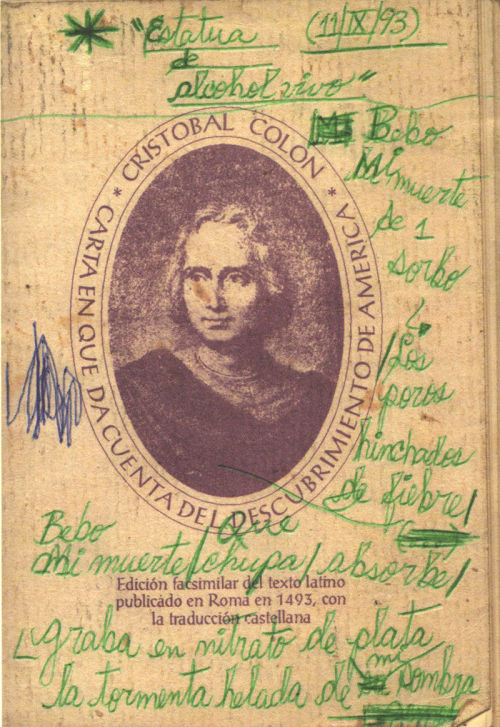 * "Estatua (11/IX/93)
de
alcohol vivo"
Bebo
Mi
muerte
de 1
sorbo
/Los
poros
hinchados
de fiebre/
* CRISTOBAL COLON *
CARTA EN QUE DA CUENTA DEL DESCUBRIMIENTO DE AMERICA
Bebo Que
Mi muerte/chupa/absorbe/
Edición facsimilar del texto latino
publicado en Roma en 1493, con
la traducción castellana
graba en nitrato de plata
la tormenta helada de mi sombra